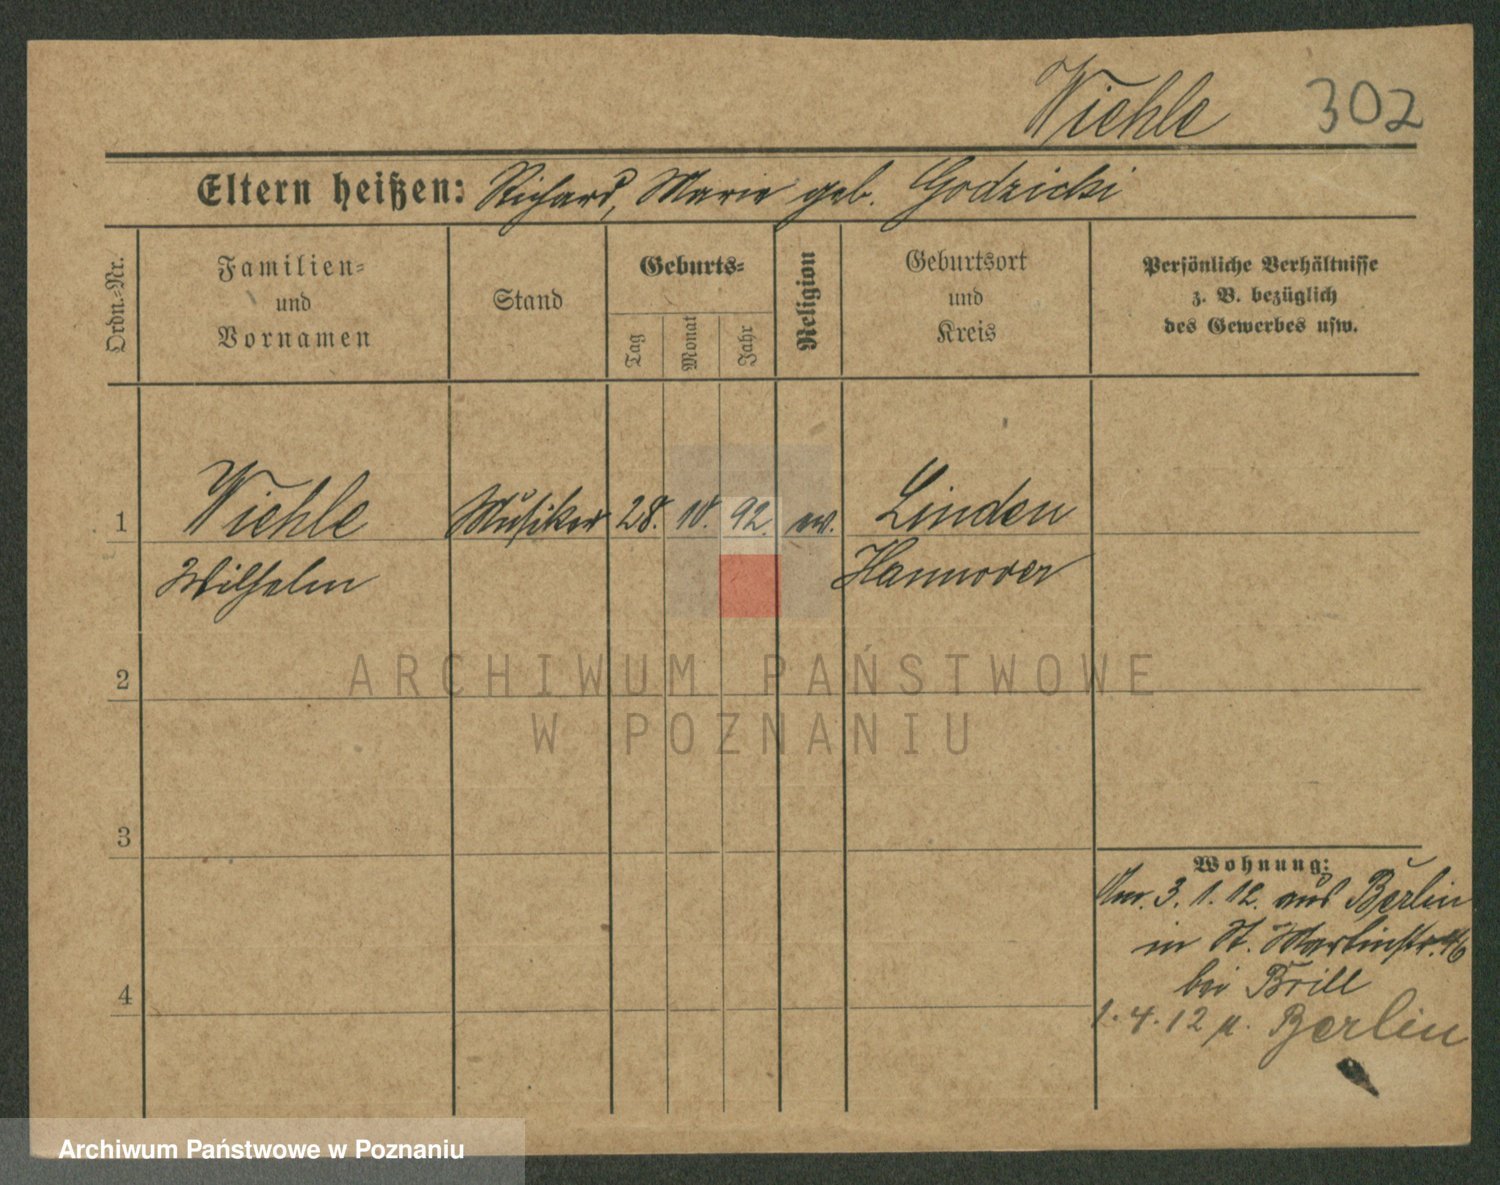 Wiehle 302
Eltern heißen: Richard, Marie geb. Godzicki
Ordn.-Nr.
Familien-
und
Vornamen
Stand
Geburts-
Tag
Monat
Jahr
Religion
Geburtsort
und
Kreis
Persönliche Verhältnisse
z. B. bezüglich
des Gewerbes usw.
1 Wiehle Musiker 28. 10. 92. ev. Linden
Wilhelm Hannover
2
ARCHIWUM PAŃSTWOWE
W POZNANIU
3
Wohnung:
3. 1. 12. aus Berlin
in St. Martinstr. 46
bei Brill
4
1. 4. 12 n. Berlin
Archiwum Państwowe w Poznaniu